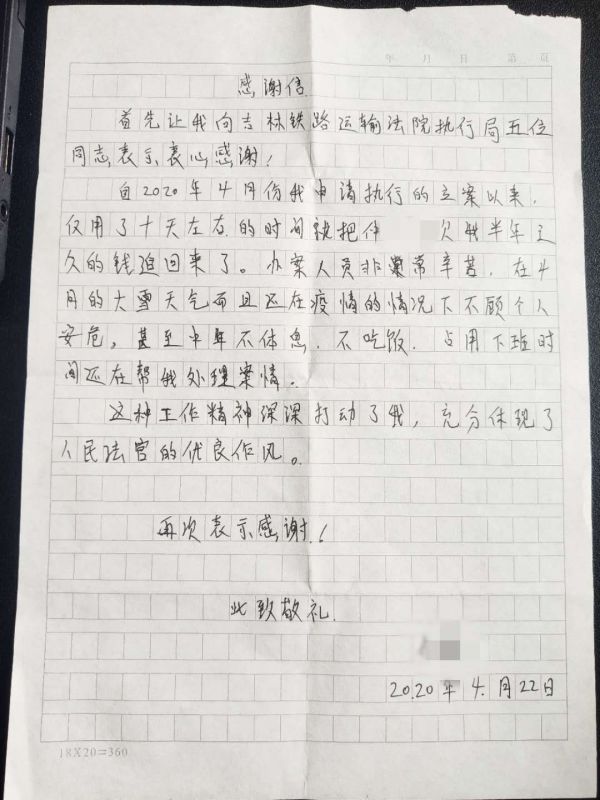 年 月 日 第 页
感谢信
首先让我向吉林铁路运输法院执行局五位
同志表示衷心感谢！
自2020年4月份我申请执行的立案以来，
仅用了十天左右的时间就把仲 欠我半年之
久的钱追回来了。办案人员非常辛苦，在4
月的大雪天气而且还在疫情的情况下不顾个人
安危，甚至中午不休息，不吃饭，占用下班时
间还在帮我处理案情。
这种工作精神深深打动了我，充分体现了
人民法官的优良作风。
再次表示感谢！
此致敬礼
2020年4.月22日
18X20=360